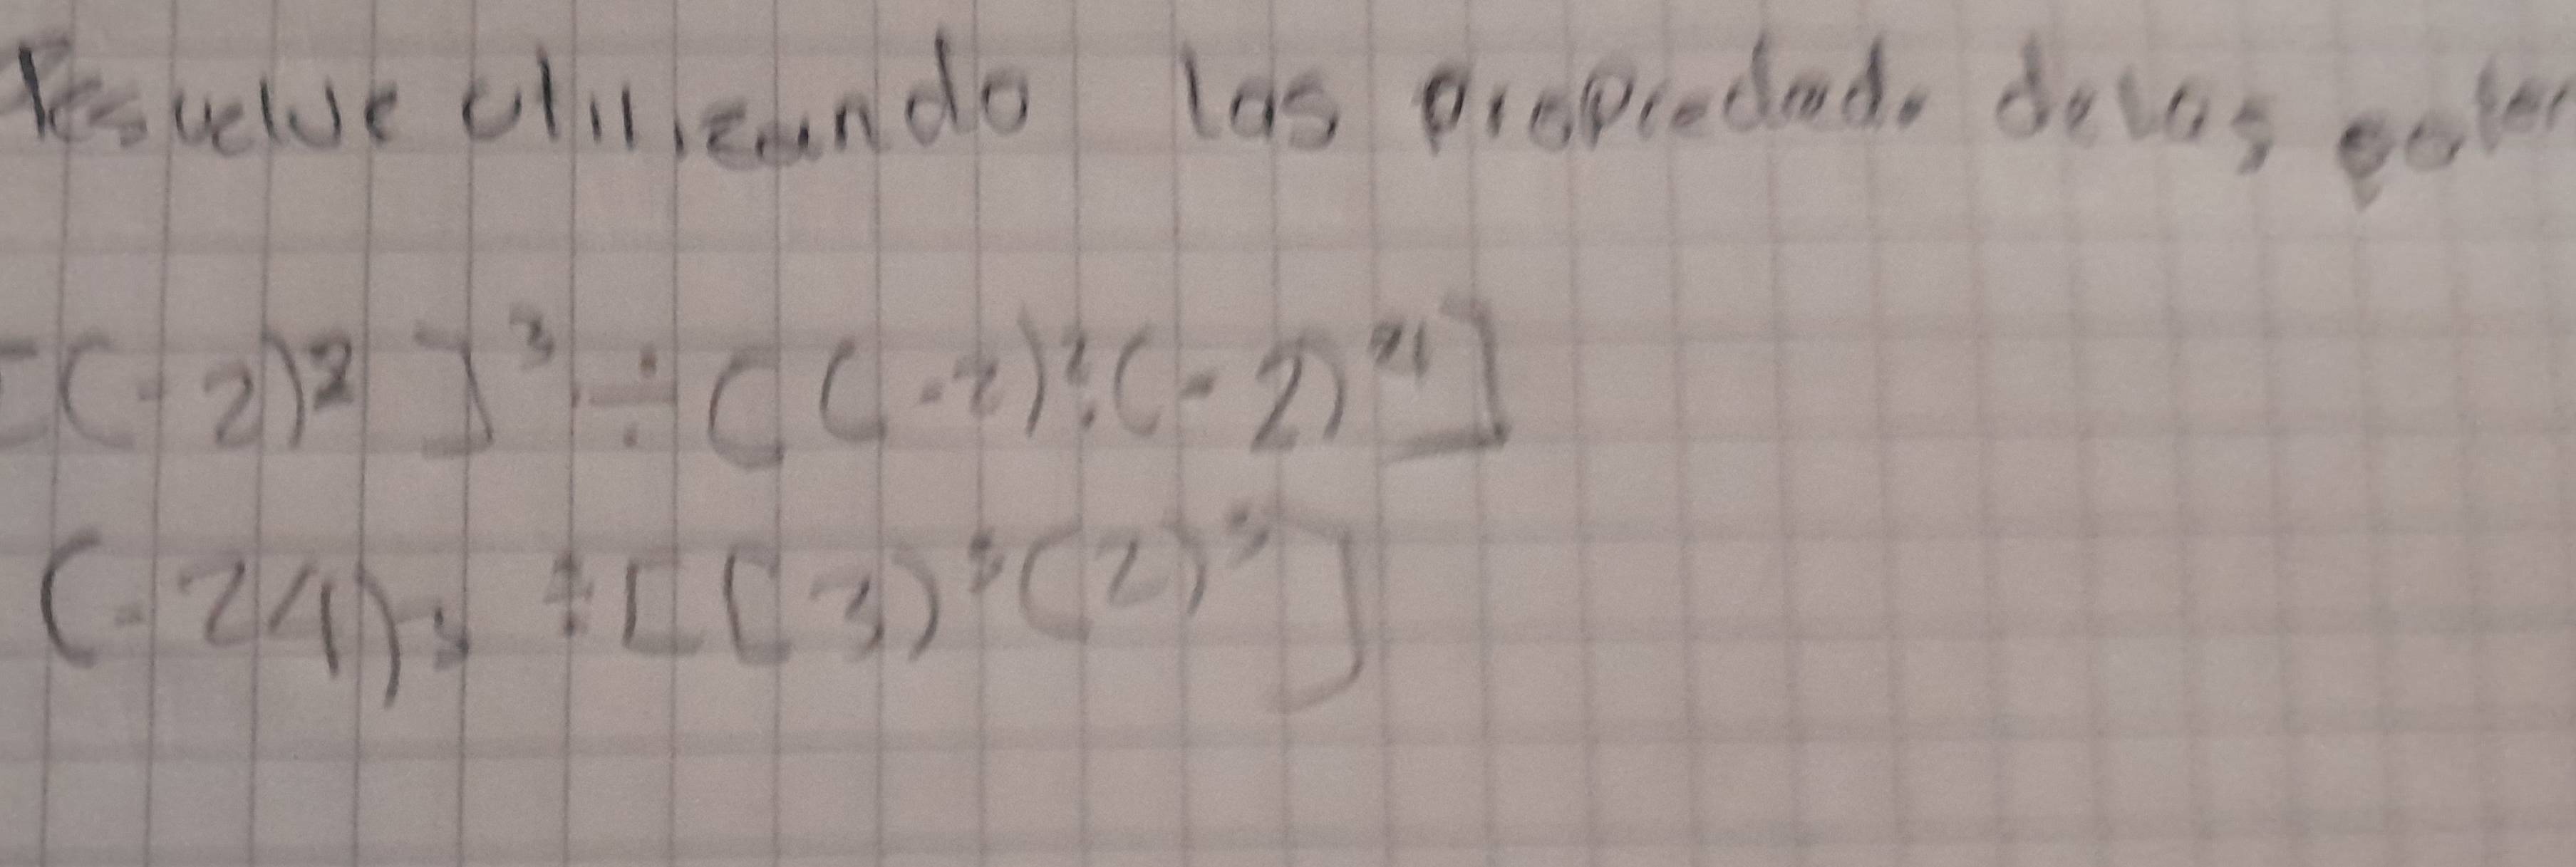 Resuelve utilizando las propiedad. de las poten
[(-2)²]³ ÷ [(-2)²:(-2)²¹]
(-24)³ ÷ [[3)³(2)³]